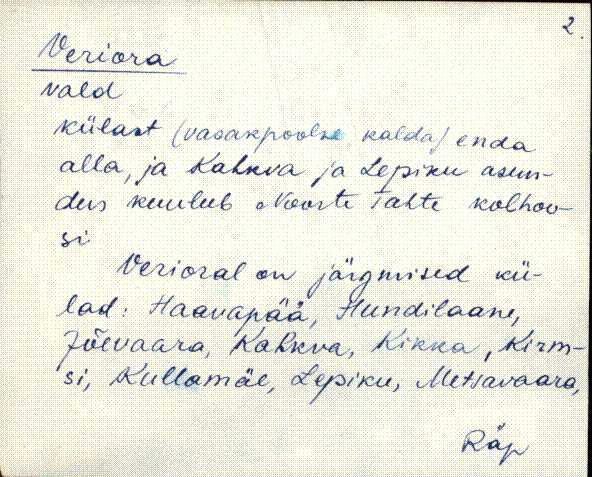 2.
Veriora
vald
külast (vasakpoolse kalda) enda
alla, ja Kahkva ja Lepiku asun-
dus kuulub Noorte Tahte kolhoo-
si
Verioral on järgmised kü-
lad: Haavapää, Hundilaane,
Jõevaara, Kahkva, Kikka, Kirm-
si, Kullamäe, Lepiku, Metsavaara,
Räp